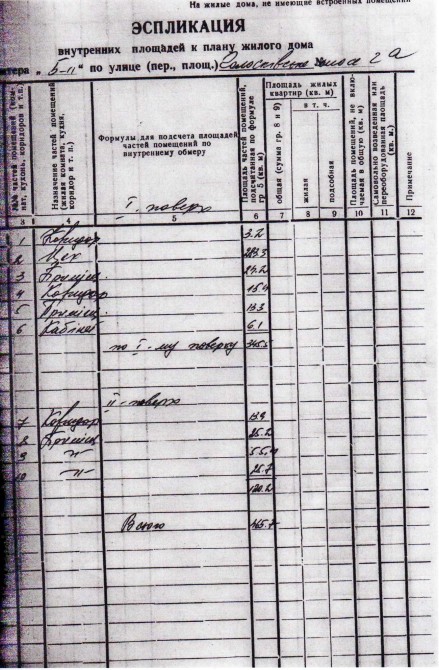 На жилые дома, не имеющие встроенных помещений
ЭСПЛИКАЦИЯ
внутренних площадей к плану жилого дома
литера „ Б-II " по улице (пер., площ.) 2 а
частей помещений
нат, кухонь, коридоров и т.п.)
Назначение частей помещений
(жилая комната, кухня,
коридор и т. п.)
Формулы для подсчета площадей
частей помещений по
внутреннему обмеру
Площадь частей помещений,
подсчитанная по формуле
гр 5 (кв. м)
Площадь жилых
квартир (кв. м)
общая (сумма гр. 8 и 9)
в т. ч.
жилая
подсобная
Площадь помещений, не вклю-
чаемая в общую (кв. м)
Самовольно возведенная или
переоборудованная площадь
(кв. м)
Примечание
3 4 5 6 7 8 9 10 11 12
I. поверх
1 Коридор 3.2
2 Цех
3
4 Коридор 15.4
5 13.3
6 Кабінет 6.1
по I-му поверху
II-поверх
7 Коридор 13.9
8 25.2
9 -"-
10 -"- 25.7
120.2
Всього 465.7